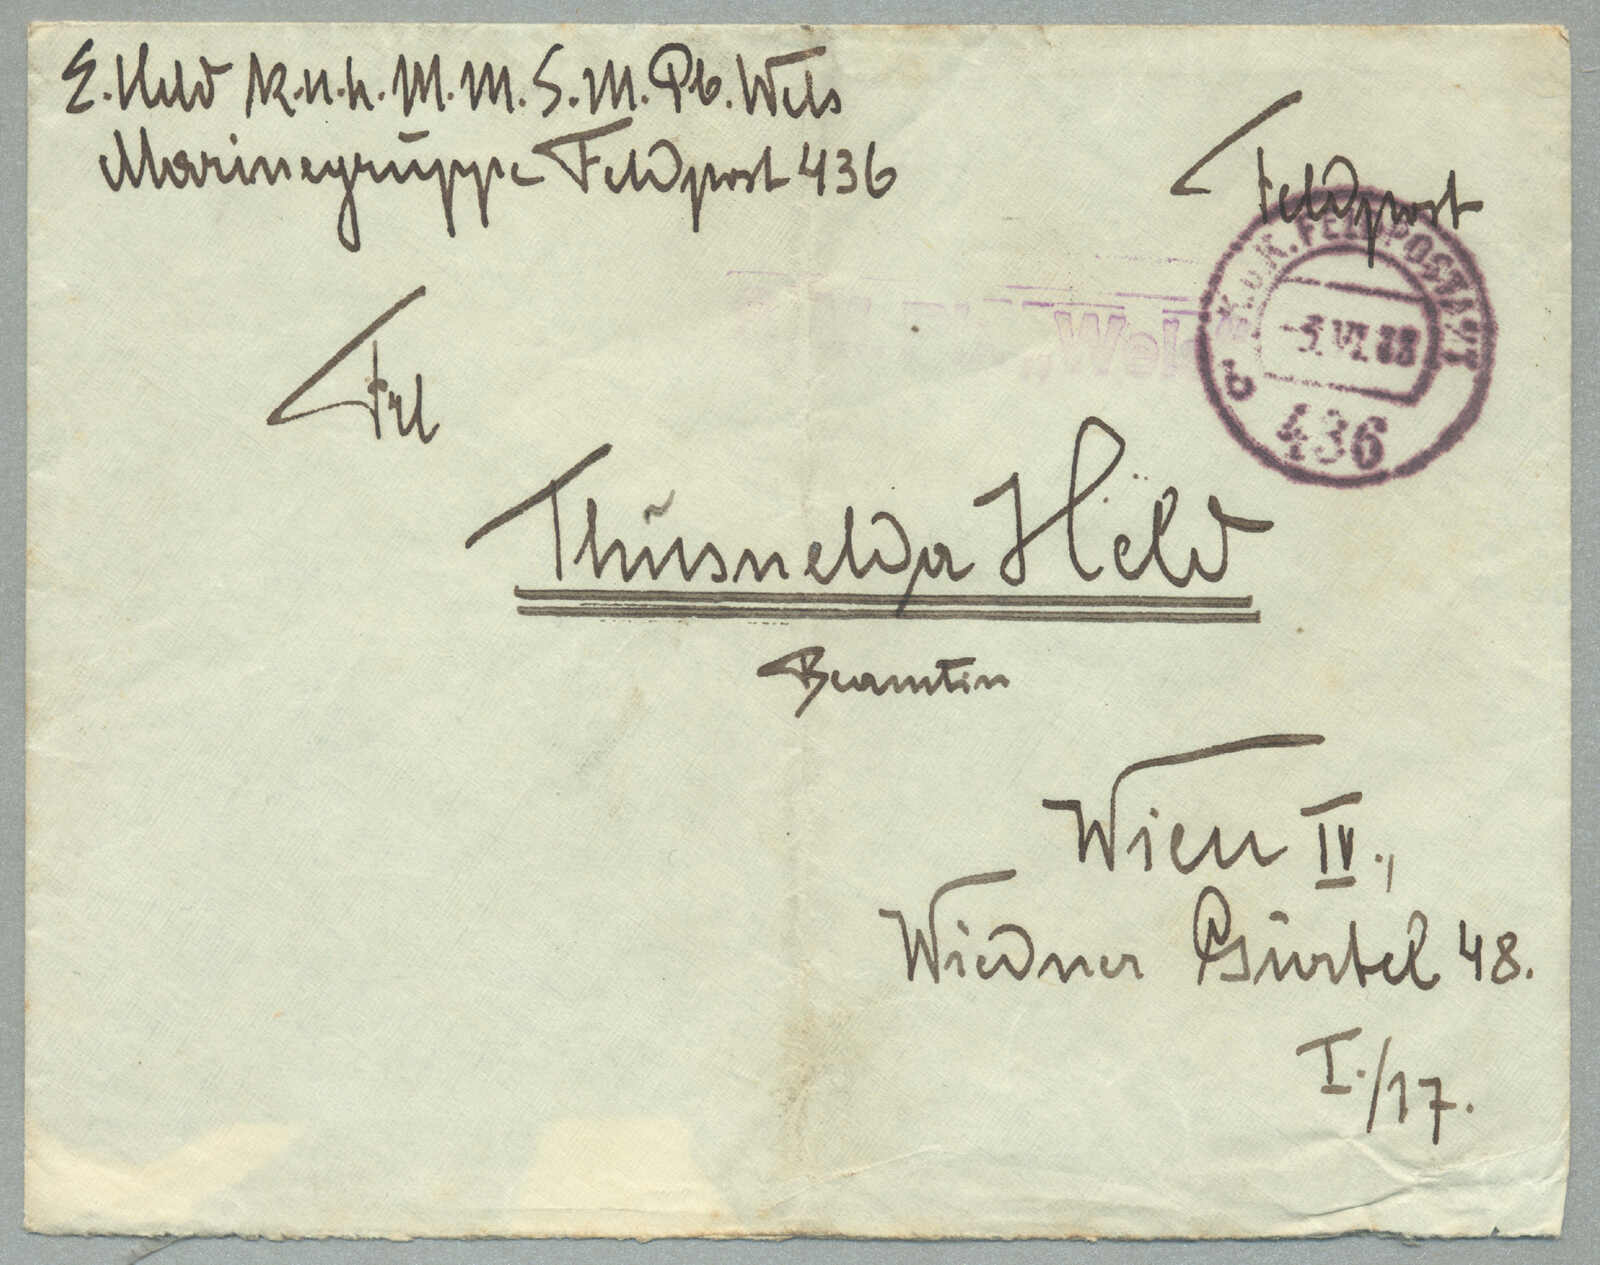 E. Held K.u.k. M.M.S.M.Pb. Wels
Marinegruppe Feldpost 436
Feldpost
K.u.K. FELDPOSTAMT
VI
c
436
„Wels“
Frl
Thusnelda Held
Beamtin
Wien IV.,
Wiedner Gürtel 48.
I./17.